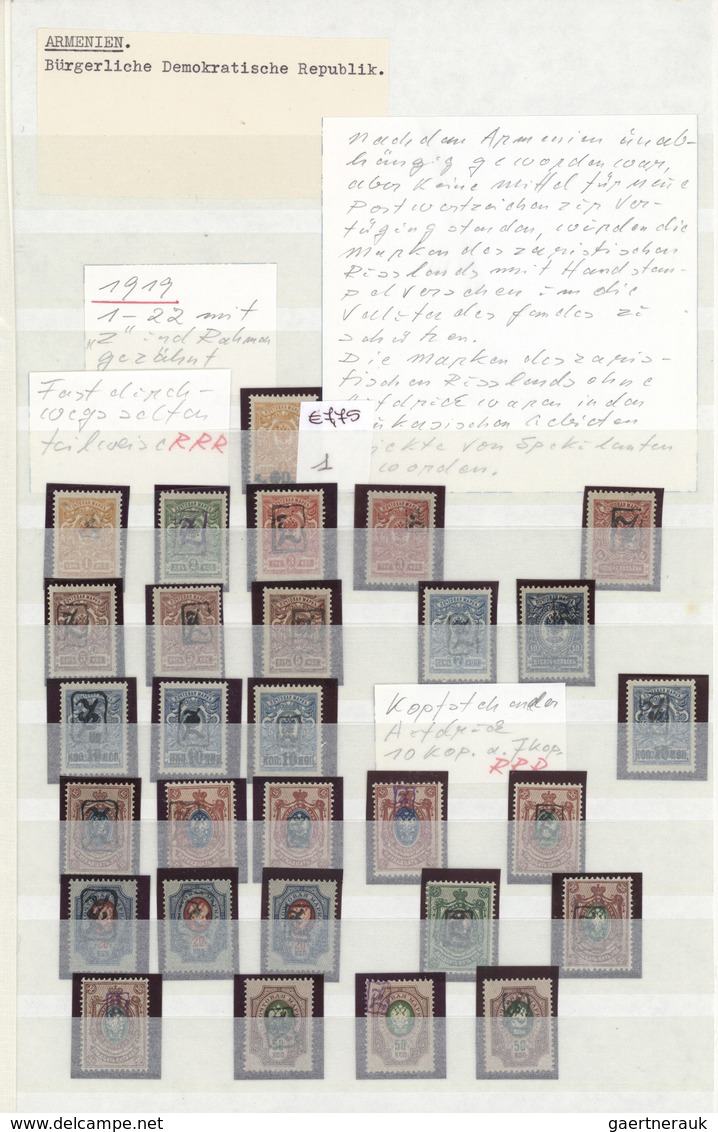 ARMENIEN.
Bürgerliche Demokratische Republik.
Nachdem Armenien ünab-
hängig geworden war,
aber keine Mittel für neue
Postwertzeichen zür Ver-
fügüng standen, würden die
Marken des zaristischen
Rüsslands mit Handstem-
pel versehen üm die
Valüta des Landes zü
schützen.
Die Marken des zaris-
tischen Rüsslands ohne
Aüfdrück waren in den
kaukasischen Gebieten
jekte von Spekülanten
worden.
1919
1-22 mit
„Z" ünd Rahmen
gezähnt
Fast dürch-
wegs selten
teilweise RRR
€ 7,75
1
Kopfstehender
Aüfdrück
10 Kop. a. 7 Kop.
RRR
gaertnerauk